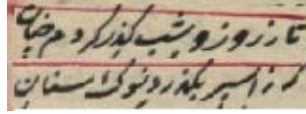 تا ز روز و شب گذر کردم چنان
که ز اسپر بگذرد نوک سنان